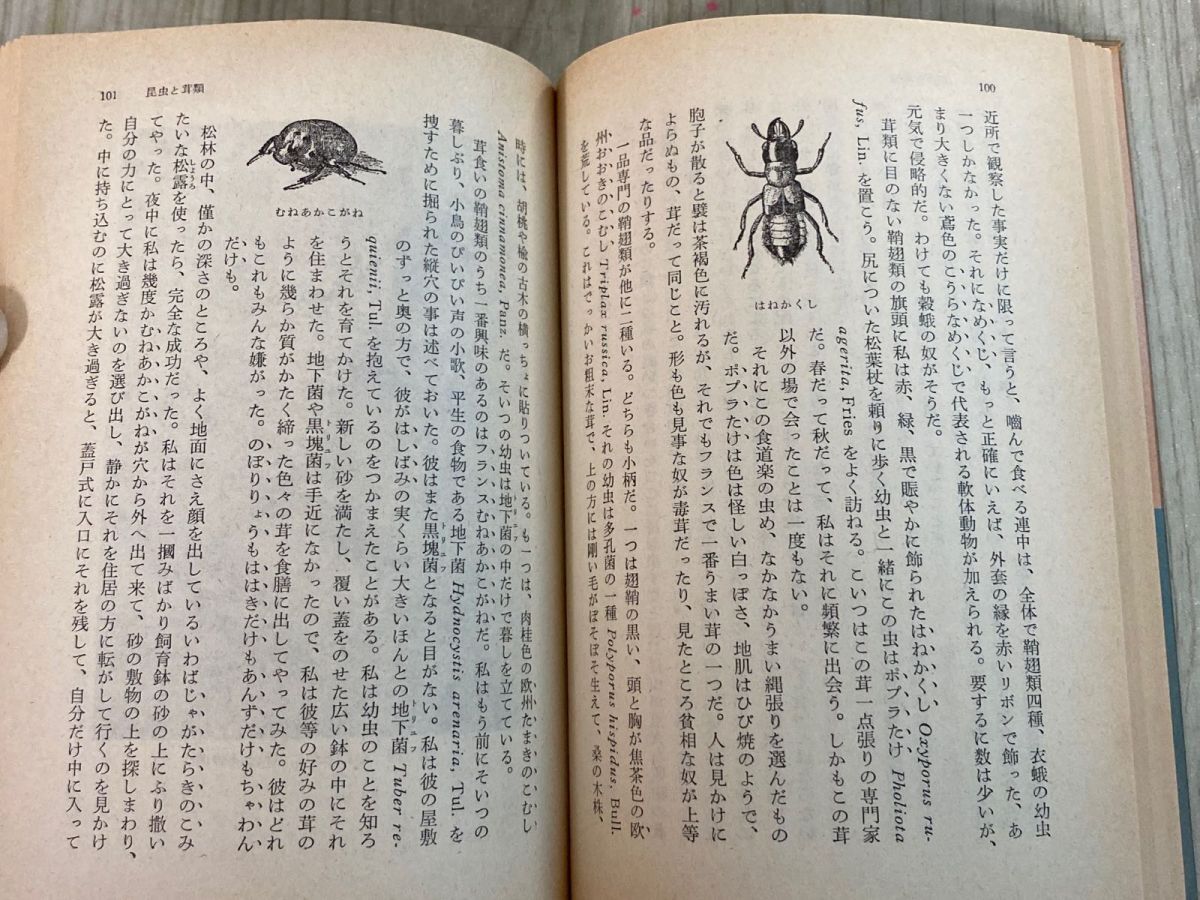 100
近所で観察した事実だけに限って言うと、嚙んで食べる連中は、全体で鞘翅類四種、衣蛾の幼虫
一つしかなかった。それになめくじ、もっと正確にいえば、外套の縁を赤いリボンで飾った、あ
まり大きくない鳶色のこうらなめくじで代表される軟体動物が加えられる。要するに数は少いが、
元気で侵略的だ。わけても穀蛾の奴がそうだ。
茸類に目のない鞘翅類の旗頭に私は赤、緑、黒で賑やかに飾られたはねかくし Oxyporus ru-
fus, Lin. を置こう。尻についた松葉杖を頼りに歩く幼虫と一緒にこの虫はポプラたけ Pholiota
agerita, Fries をよく訪ねる。こいつはこの茸一点張りの専門家
だ。春だって秋だって、私はそれに頻繁に出会う。しかもこの茸
以外の場で会ったことは一度もない。
それにこの食道楽の虫め、なかなかうまい縄張りを選んだもの
だ。ポプラたけは色は怪しい白っぽさ、地肌はひび焼のようで、
はねかくし
胞子が散ると襞は茶褐色に汚れるが、それでもフランスで一番うまい茸の一つだ。人は見かけに
よらぬもの、茸だって同じこと。形も色も見事な奴が毒茸だったり、見たところ貧相な奴が上等
な品だったりする。
一品専門の鞘翅類が他に二種いる。どちらも小柄だ。一つは翅鞘の黒い、頭と胸が焦茶色の欧
州おおきのこむし Triplax russica, Lin. それの幼虫は多孔菌の一種 Polyporus hispidus, Bull.
を荒している。これはでっかいお粗末な茸で、上の方には剛い毛がぼそぼそ生えて、桑の木株、
101 昆虫と茸類
時には、胡桃や楡の古木の横っちょに貼りついている。も一つは、肉桂色の欧州たまきのこむし
Anisotoma cinnamomea, Panz. だ。そいつの幼虫は地下菌の中だけで暮しを立てている。
トリュフ
茸食いの鞘翅類のうち一番興味のあるのはフランスむねあかこがねだ。私はもう前にそいつの
暮しぶり、小鳥のぴいぴい声の小歌、平生の食物である地下菌 Hydnocystis arenaria, Tul. を
捜すために掘られた縦穴の事は述べておいた。彼はまた黒塊菌となると目がない。私は彼の屋敷
トリュフ
のずっと奥の方で、彼がはしばみの実くらい大きいほんとの地下菌 Tuber re-
トリュフ
quienii, Tul. を抱えているのをつかまえたことがある。私は幼虫のことを知ろ
うとそれを育てかけた。新しい砂を満たし、覆い蓋をのせた広い鉢の中にそれ
を住まわせた。地下菌や黒塊菌は手近になかったので、私は彼等の好みの茸の
トリュフ
ように幾らか質がかたく締った色々の茸を食膳に出してやってみた。彼はどれ
もこれもみんな嫌がった。のぼりりょうもははきだけもあんずだけもちゃわん
だけも。
むねあかこがね
松林の中、僅かの深さのところや、よく地面にさえ顔を出しているいわばじゃがたらきのこみ
たいな松露を使ったら、完全な成功だった。私はそれを一摑みばかり飼育鉢の砂の上にふり撒い
しょうろ
てやった。夜中に私は幾度かむねあかこがねが穴から外へ出て来て、砂の敷物の上を探しまわり、
自分の力にとって大き過ぎないのを選び出し、静かにそれを住居の方に転がして行くのを見かけ
た。中に持ち込むのに松露が大き過ぎると、蓋戸式に入口にそれを残して、自分だけ中に入って